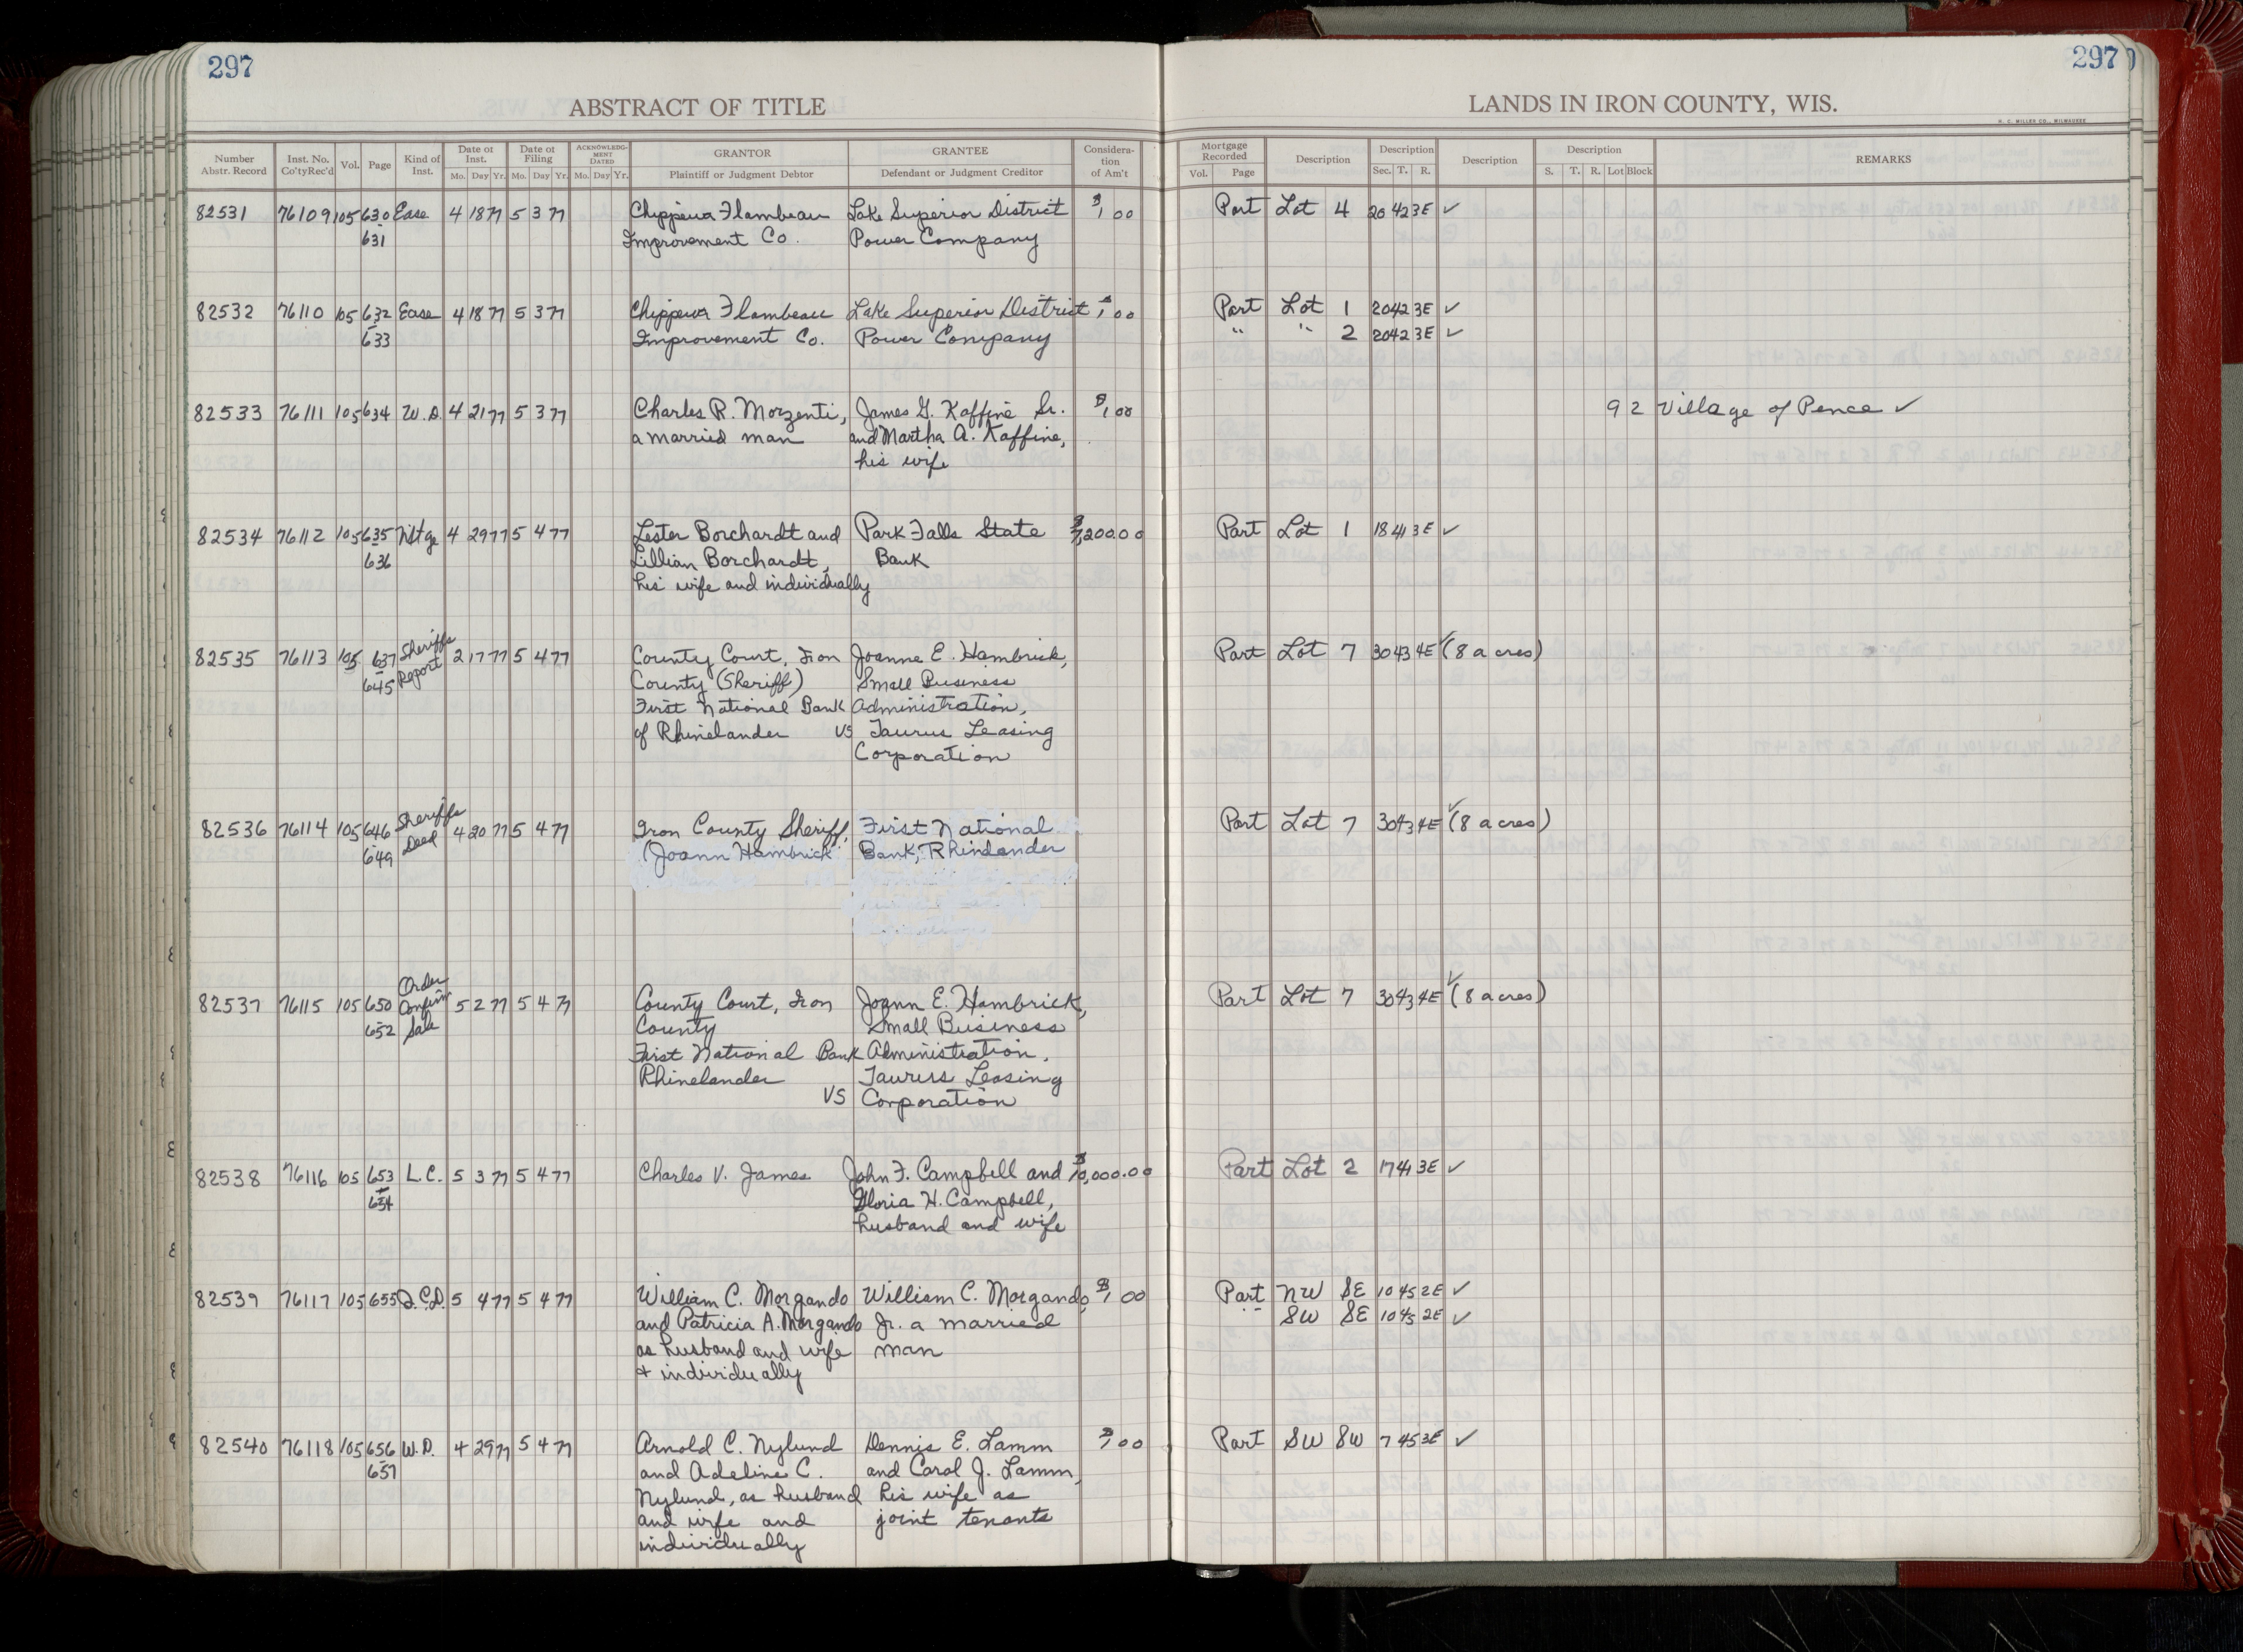 297
297
ABSTRACT OF TITLE
LANDS IN IRON COUNTY, WIS.
H. C. MILLER CO., MILWAUKEE
Number Abstr. Record Inst. No. Co'tyRec'd Vol. Page Kind of Inst. Date of Inst. Mo. Day Yr. Date of Filing Mo. Day Yr. ACKNOWLEDG-MENT DATED Mo. Day Yr. GRANTOR Plaintiff or Judgment Debtor GRANTEE Defendant or Judgment Creditor Considera-tion of Am't Mortgage Recorded Vol. Page Description Description Sec. T. R. Description Description S. T. R. Lot Block REMARKS
82531 76109 105 630 Ease 4 18 77 5 3 77 Chippewa Flambeau Lake Superior District $1,00 Part Lot 4 20 42 3E ✓
631 Improvement Co. Power Company
82532 76110 105 632 Ease 4 18 77 5 3 77 Chippewa Flambeau Lake Superior District $1,00 Part Lot 1 20 42 3E ✓
633 Improvement Co. Power Company " " 2 20 42 3E ✓
82533 76111 105 634 W.D. 4 21 77 5 3 77 Charles R. Morzenti, James G. Kaffine Sr. $1,00 9 2 Village of Pence ✓
a married man and Martha A. Kaffine,
his wife
82534 76112 105 635 Mtge 4 29 77 5 4 77 Lester Borchardt and Park Falls State $7,200.00 Part Lot 1 18 41 3E ✓
636 Lillian Borchardt, Bank
his wife and individually
82535 76113 105 637 Sheriffs 2 17 77 5 4 77 County Court, Iron Joanne E. Hambrick, Part Lot 7 30 43 4E ✓ (8 acres)
645 Report County (Sheriff) Small Business
First National Bank Administration,
of Rhinelander VS Taurus Leasing
Corporation
82536 76114 105 646 Sheriffs 4 20 77 5 4 77 Iron County Sheriff, First National Part Lot 7 30 43 4E ✓ (8 acres)
649 Deed (Joann Hambrick Bank, Rhinelander
82537 76115 105 650 Order 5 2 77 5 4 77 County Court, Iron Joann E. Hambrick, Part Lot 7 30 43 4E ✓ (8 acres)
652 Confirm Sale County Small Business
First National Bank Administration,
Rhinelander Taurus Leasing
VS Corporation
82538 76116 105 653 L.C. 5 3 77 5 4 77 Charles V. James John F. Campbell and $10,000.00 Part Lot 2 17 41 3E ✓
654 Gloria H. Campbell,
husband and wife
82539 76117 105 655 Q.C.D. 5 4 77 5 4 77 William C. Morgando William C. Morgando, $1,00 Part NW SE 10 45 2E ✓
and Patricia A. Morgando Jr. a married " SW SE 10 45 2E ✓
as husband and wife man
+ individually
82540 76118 105 656 W.D. 4 29 77 5 4 77 Arnold C. Nylund Dennis E. Lamm $1,00 Part SW SW 7 45 3E ✓
657 and Adeline C. and Carol J. Lamm,
Nylund, as husband his wife as
and wife and joint tenants
individually